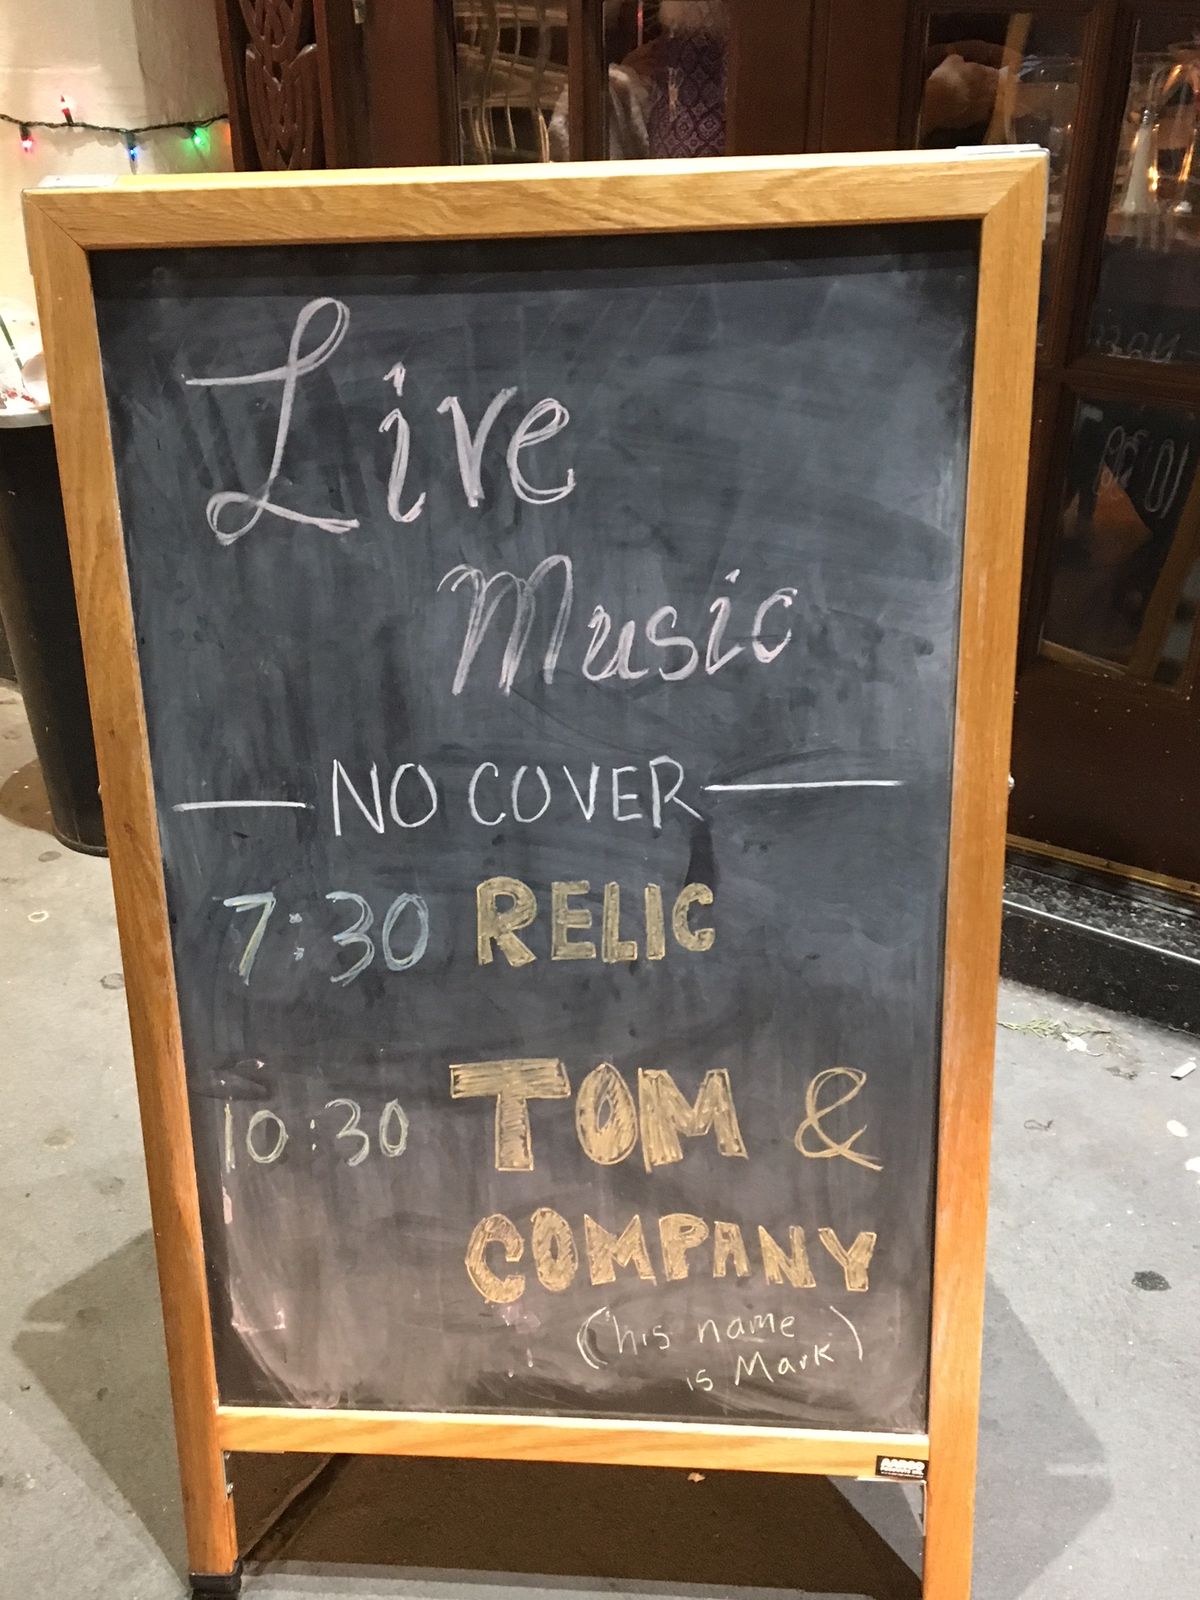 Live
Music
NO COVER
7:30 RELIC
10:30 TOM &
COMPANY
(his name
is Mark)